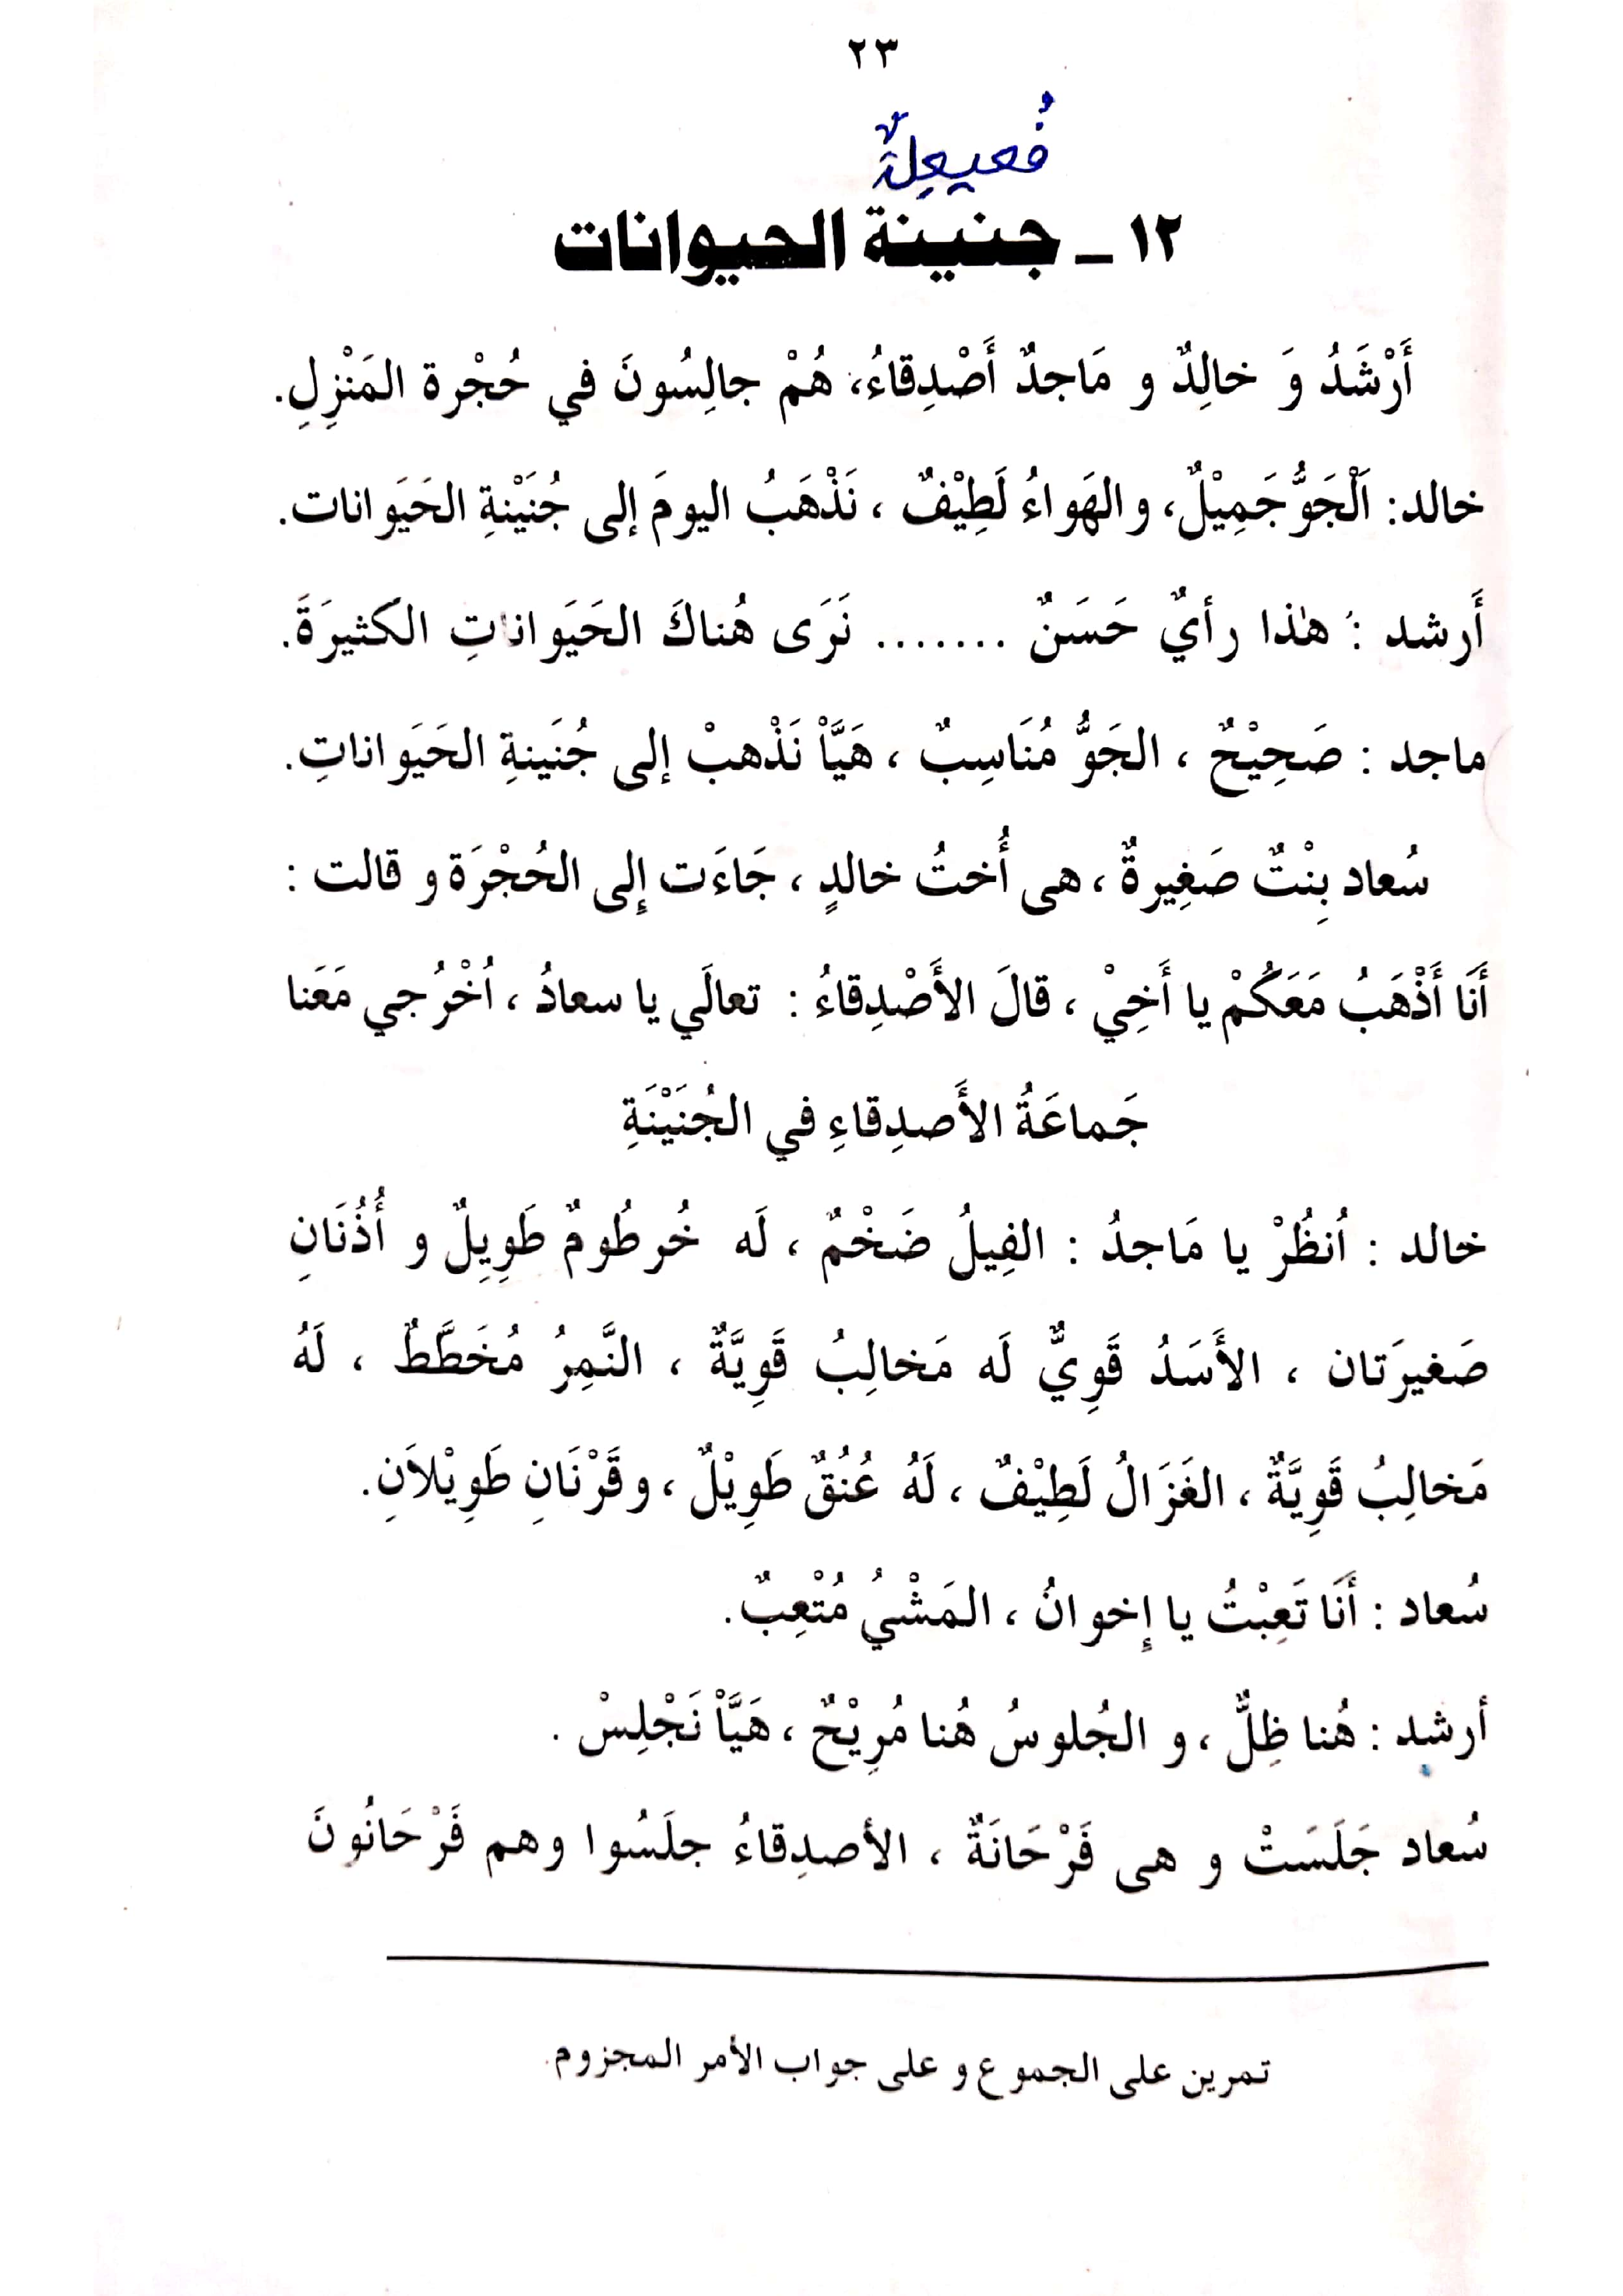 ٢٣
فُعيعِلةٌ
١٢ ـ جنينة الحيوانات
أَرْشَدُ وَ خالِدٌ و مَاجدٌ أَصْدِقاءُ، هُمْ جالِسُونَ في حُجْرة المَنْزِلِ.
خالد: اَلْجَوُّ جَمِيْلٌ، والهَواءُ لَطِيْفٌ ، نَذْهَبُ اليومَ إلى جُنَيْنةِ الحَيَوانات.
أَرشد : هٰذا رأيٌ حَسَنٌ ....... نَرَى هُناكَ الحَيَواناتِ الكثيرَةَ.
ماجد : صَحِيْحٌ ، الجَوُّ مُنَاسِبٌ ، هَيَّاْ نَذْهبْ إلى جُنَينةِ الحَيَواناتِ.
سُعاد بِنْتٌ صَغِيرةٌ ، هى أُختُ خالدٍ ، جَاءَت إِلى الحُجْرَة و قالت :
أَنَا أَذْهَبُ مَعَكُمْ يا أَخِيْ ، قالَ الأَصْدِقاءُ : تعالَي يا سعادُ ، اُخْرُجي مَعَنا
جَماعَةُ الأَصدِقاءِ في الجُنَيْنَةِ
خالد : اُنظُرْ يا مَاجدُ : الفِيلُ ضَخْمٌ ، لَه خُرطُومٌ طَوِيِلٌ و أُذُنَانِ
صَغيرَتان ، الأَسَدُ قَوِيٌّ لَه مَخالِبُ قَوِيَّةٌ ، النَّمِرُ مُخَطَّطٌ ، لَهُ
مَخالِبُ قَوِيَّةٌ ، الغَزَالُ لَطِيْفٌ ، لَهُ عُنُقٌ طَوِيْلٌ ، وقَرْنَانِ طَوِيْلاَنِ.
سُعاد : أَنَا تَعِبْتُ يا إِخوانُ ، المَشْيُ مُتْعِبٌ.
أرشد : هُنا ظِلٌّ ، و الجُلوسُ هُنا مُرِيْحٌ ، هَيَّاْ نَجْلِسْ .
سُعاد جَلَسَتْ و هى فَرْحَانَةٌ ، الأصدِقاءُ جلَسُوا وهم فَرْحَانُونَ
تمرين على الجموع و على جواب الأمر المجزوم.